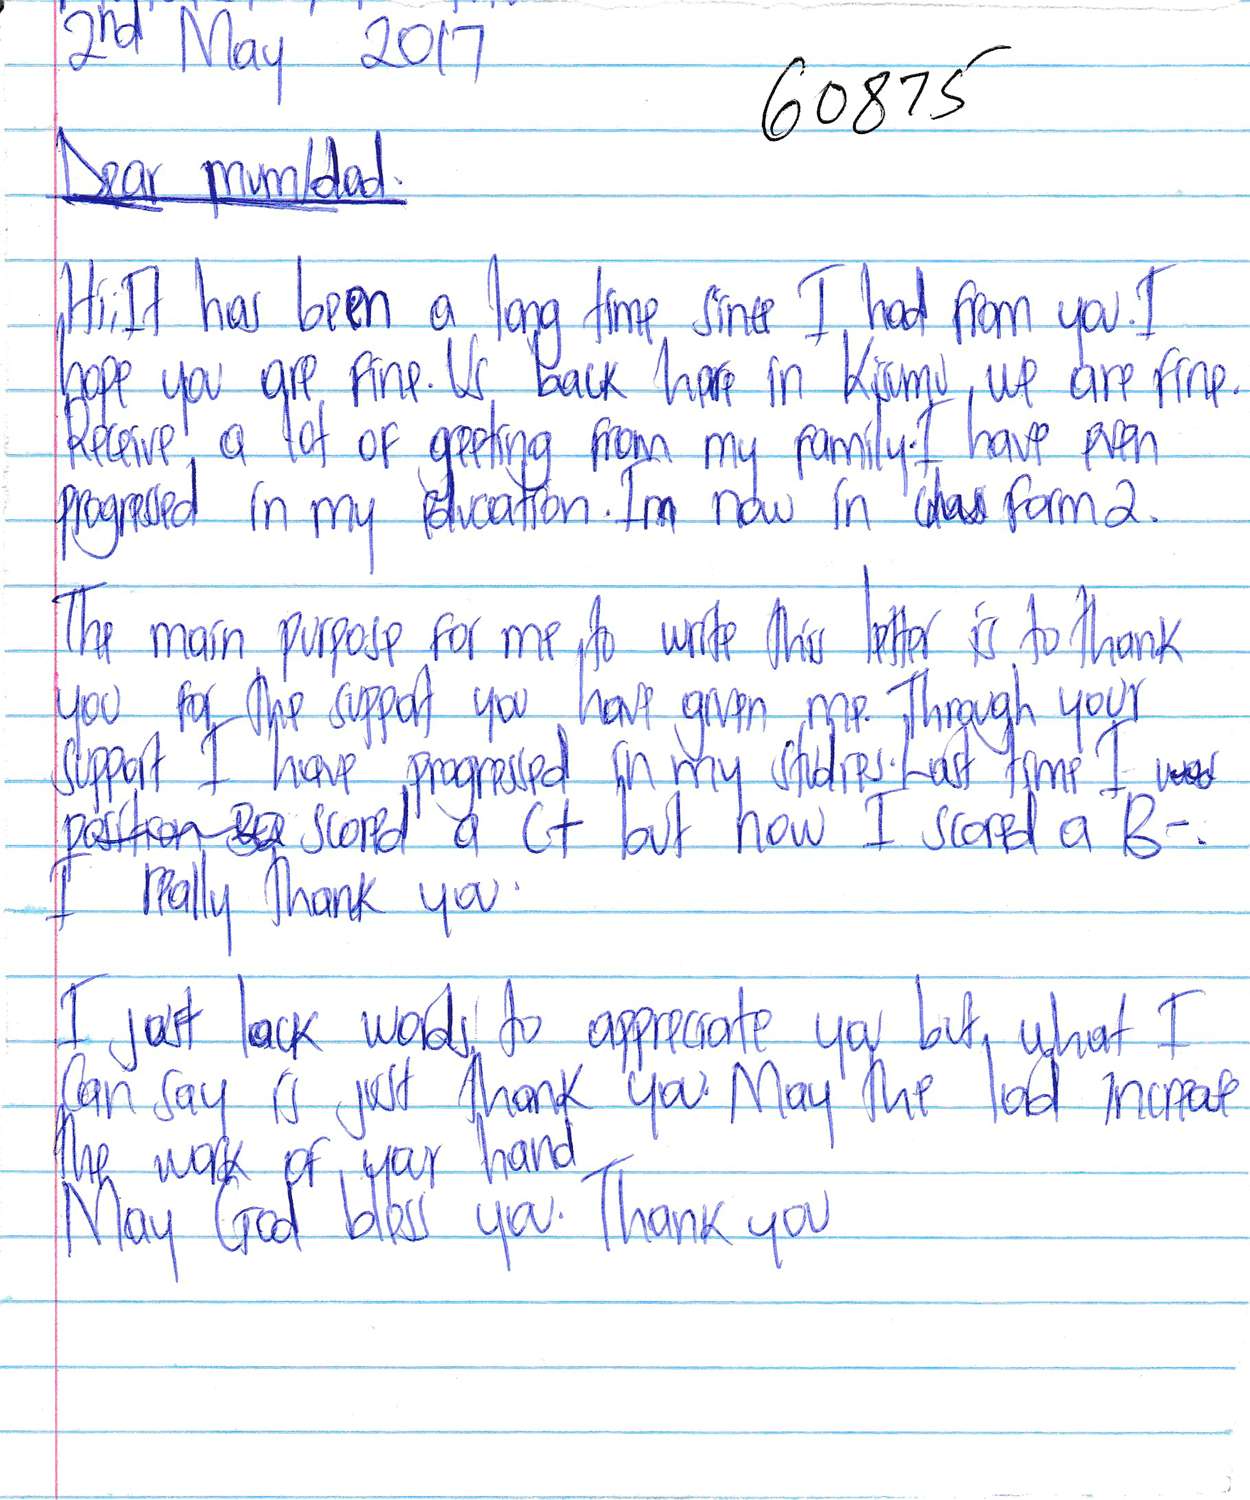 2nd May 2017
60875
Dear mum/dad.
Hi; It has been a long time since I had from you. I
hope you are fine. Us back here in Kisumu, we are fine.
Receive a lot of greeting from my family. I have even
progressed in my education. Im now in class form 2.
The main purpose for me to write this letter is to thank
you for the support you have given me. Through your
support I have progressed in my studies. Last time I was
position scored a C+ but now I scored a B-.
I really thank you.
I just lack words to appreciate you but what I
Can say is just thank you. May the lord increase
the work of your hand
May God bless you. Thank you